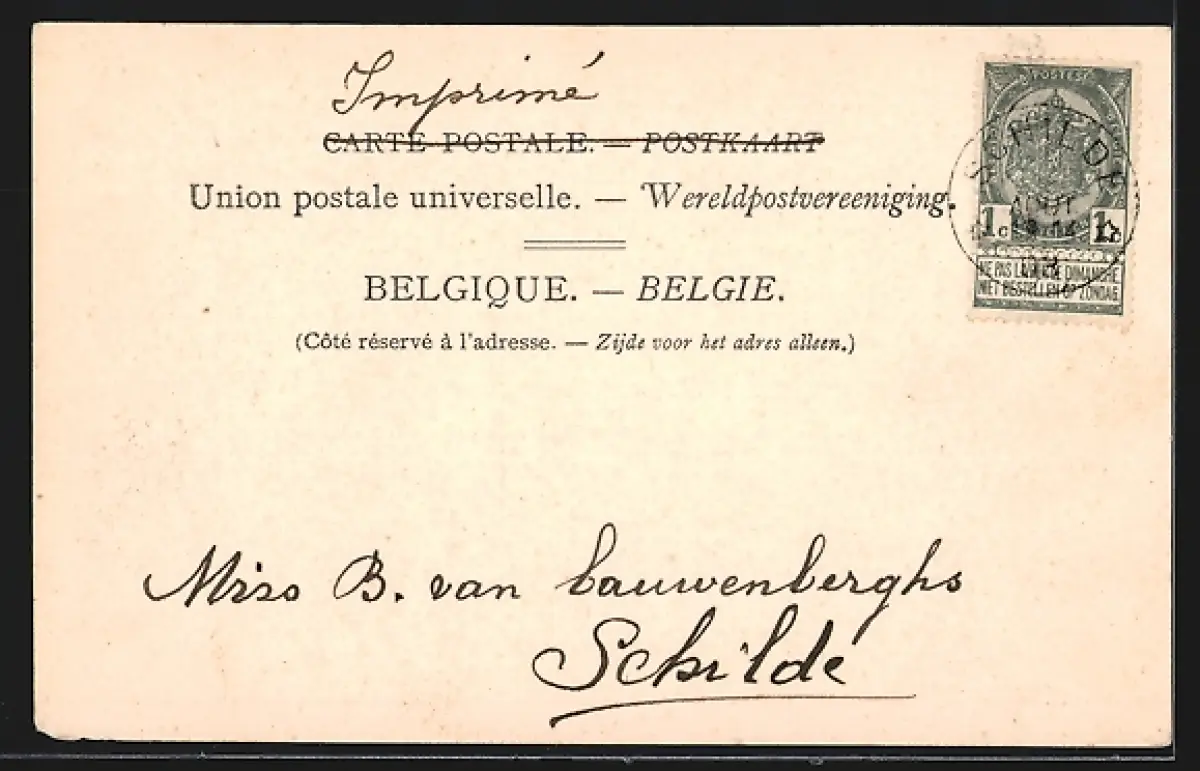 Imprimé
CARTE POSTALE. — POSTKAART
Union postale universelle. — Wereldpostvereeniging.
BELGIQUE. — BELGIE.
(Côté réservé à l'adresse. — Zijde voor het adres alleen.)
POSTES
SCHILDE
1c 1c
NE PAS LIVRER LE DIMANCHE
NIET BESTELLEN OP ZONDAG
Miss B. van Cauwenberghs
Schilde